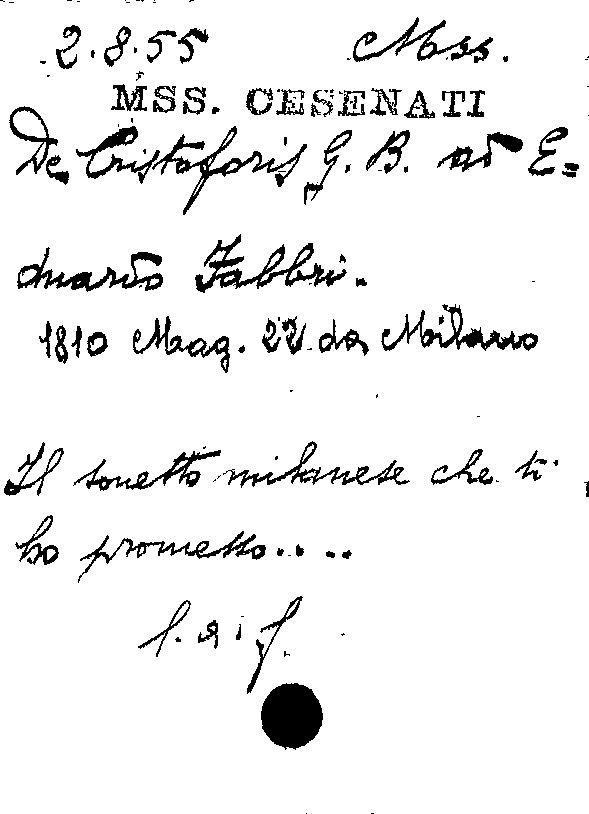 2.8.55 Mss.
MSS. CESENATI
De Cristoforis G. B. ad E=
duardo Fabbri.
1810 Mag. 22 da Milano
Il sonetto milanese che ti
ho promesso....
l. a. f.